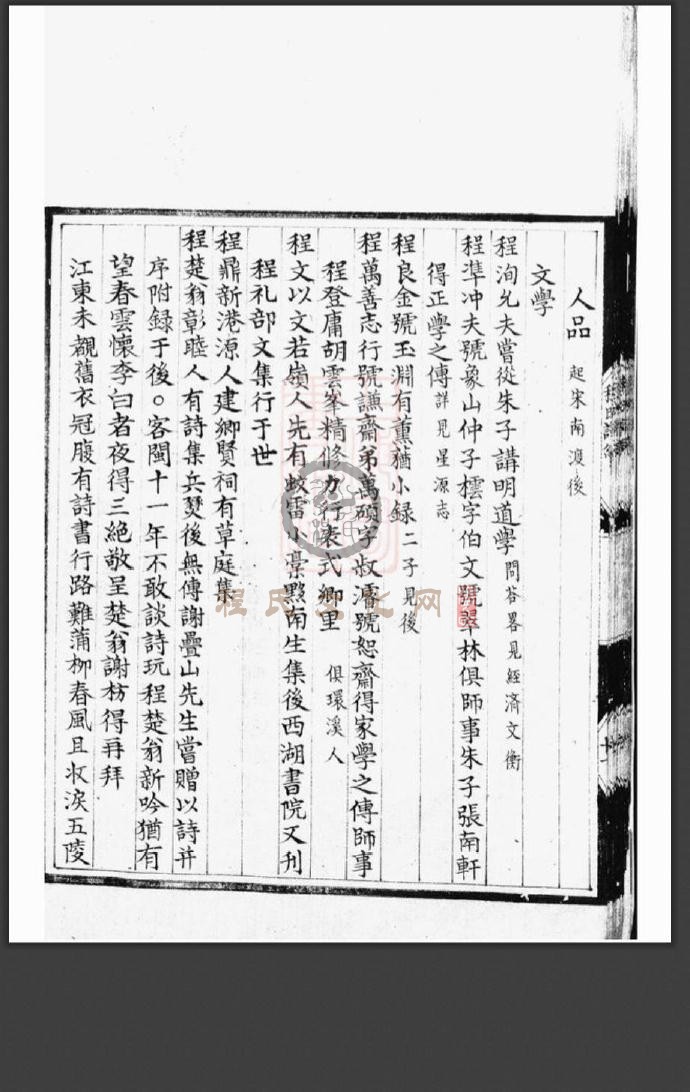 人品 起宋南渡後
文學
程洵允夫嘗從朱子講明道學問荅畧見經済文衡
程凖冲夫號象山仲子樰字伯文號翠林俱師事朱子張南軒
得正學之傳詳見星源志
程良金號玉淵有薫猶小録二子見後
程萬善志行號謙齋弟萬碩字叔濬號恕齋得家學之傳師事
程登庸胡雲峯精修力行表式郷里 俱環溪人
程文以文若嶺人先有蚊雷小稾黟南生集後西湖書院又刋
程礼部文集行于世
程鼎新港源人建郷賢祠有草庭集
程楚翁彰睦人有詩集兵燹後無傳謝疊山先生嘗贈以詩并
序附録于後○客閩十一年不敢談詩玩程楚翁新吟猶有
望春雲懷李白者夜得三絶敬呈楚翁謝枋得再拜
江東未覩舊衣冠腹有詩書行路難蒲柳春風且收淚五陵
程氏文化网